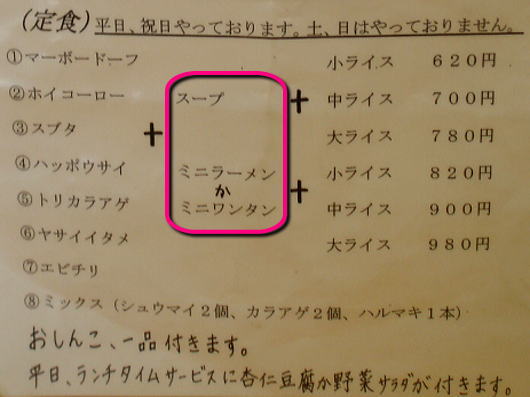 (定食) 平日、祝日やっております。土、日はやっておりません。
①マーボードーフ 小ライス 620円
②ホイコーロー スープ + 中ライス 700円
③スブタ + 大ライス 780円
④ハッポウサイ ミニラーメン 小ライス 820円
か +
⑤トリカラアゲ ミニワンタン 中ライス 900円
⑥ヤサイイタメ 大ライス 980円
⑦エビチリ
⑧ミックス(シュウマイ2個、カラアゲ2個、ハルマキ1本)
おしんこ、一品付きます。
平日、ランチタイムサービスに杏仁豆腐か野菜サラダが付きます。